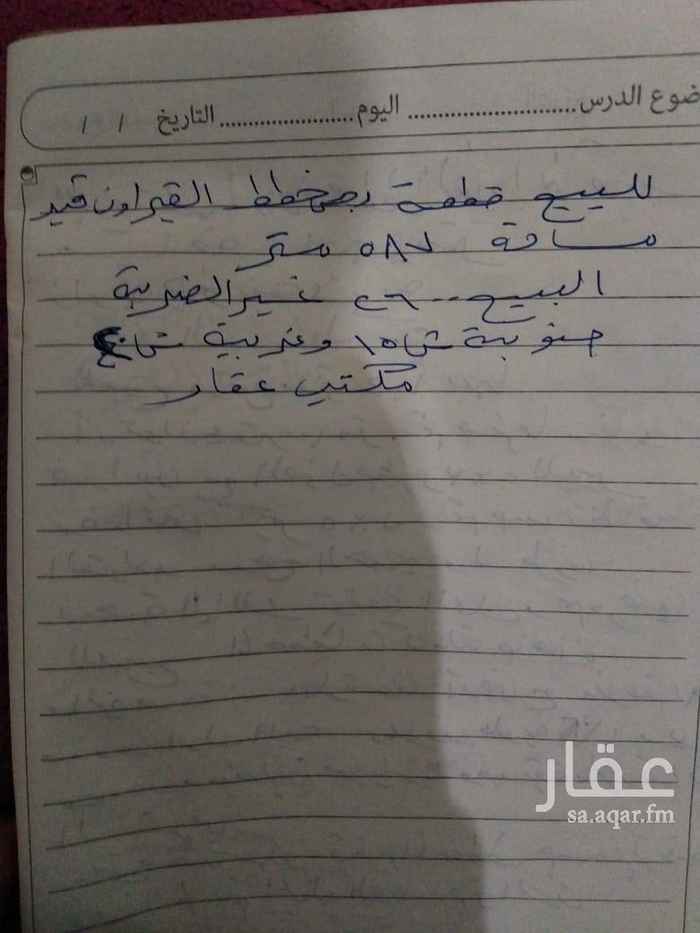 ضوع الدرس ........................ اليوم .................... التاريخ / /
للبيع قطعة بمخطط القيراون قيد
مساحة ٥٨٧ متر
البيع ٢٦٠٠ غير الضريبة
جنوبية ش١٥ وغربية ش
مكتب عقار
عقار
sa.aqar.fm